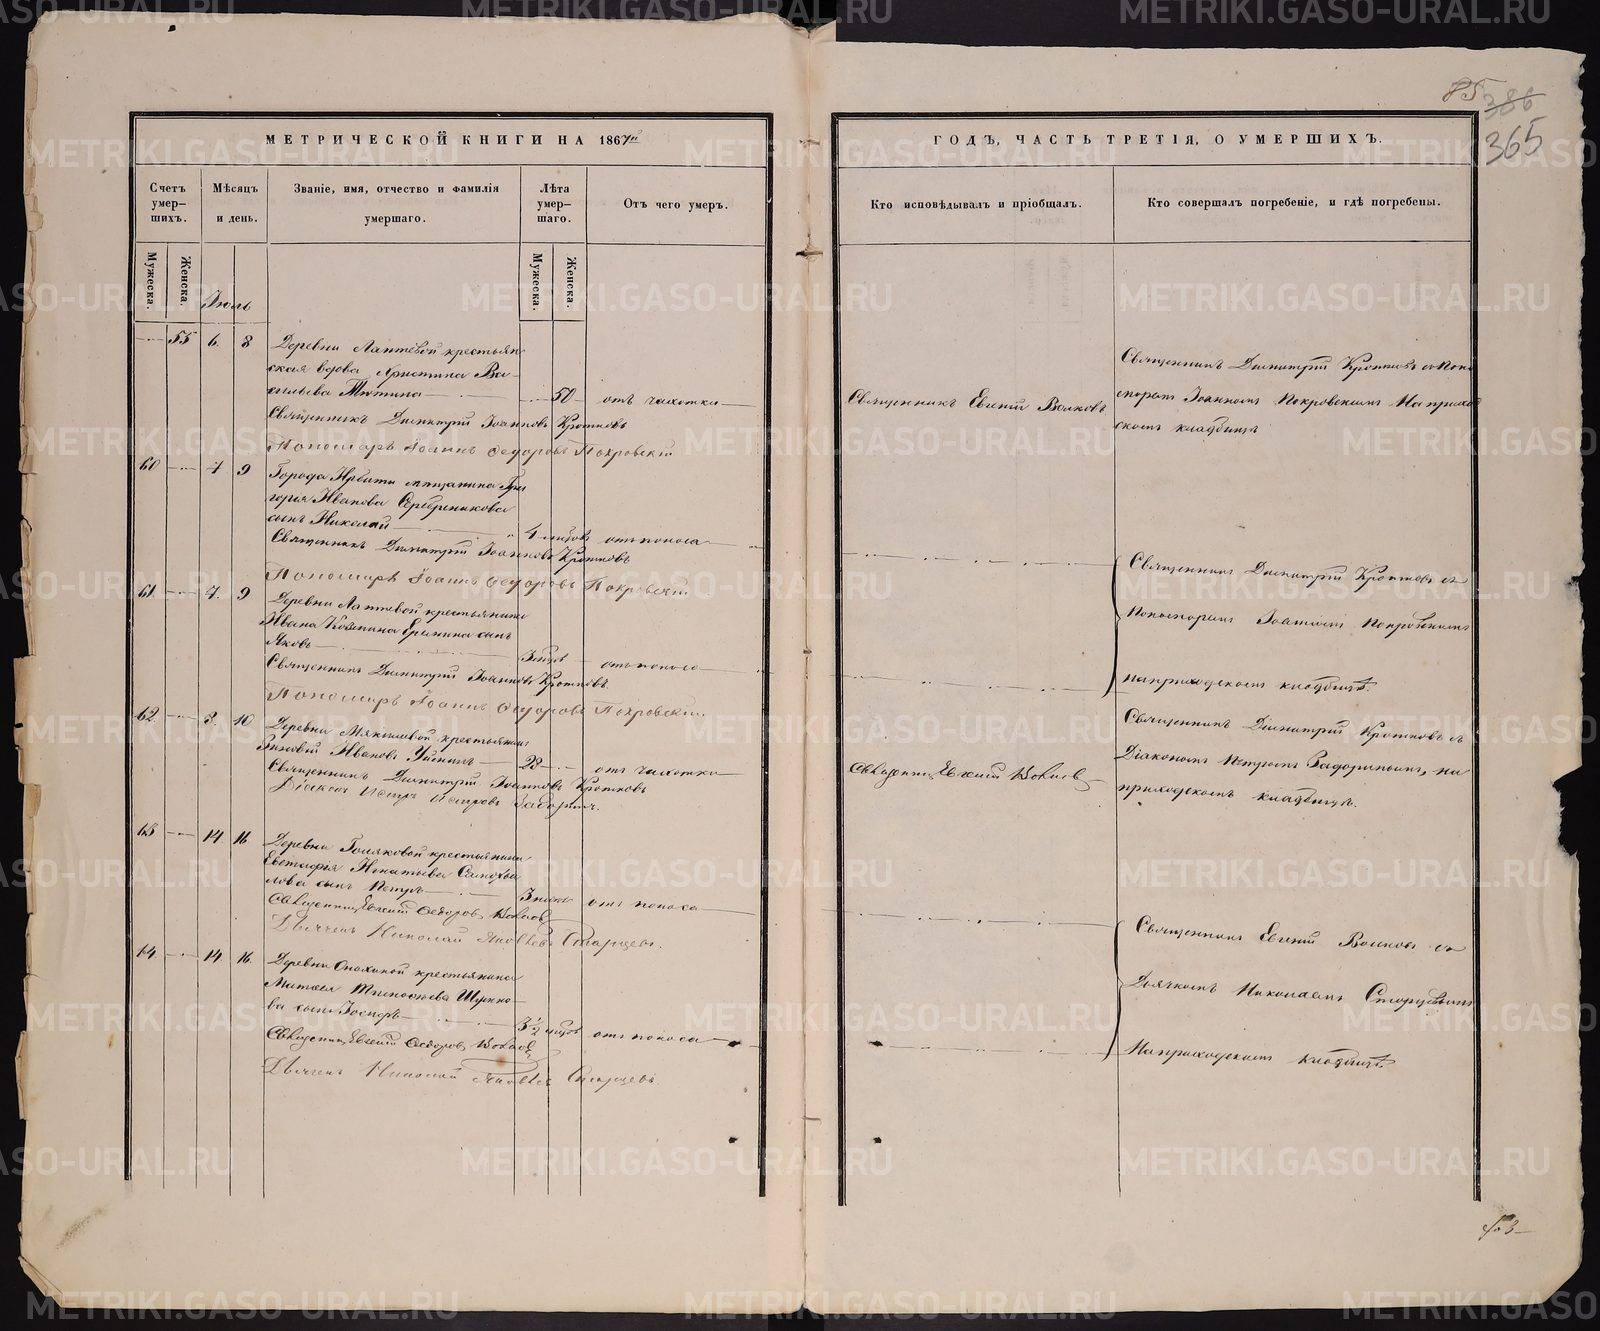 85 386
365
МЕТРИЧЕСКОЙ КНИГИ НА 1867й
ГОДЪ, ЧАСТЬ ТРЕТІЯ, О УМЕРШИХЪ.
Счетъ умер-шихъ.
Мѣсяцъ и день.
Званіе, имя, отчество и фамилія умершаго.
Лѣта умер-шаго.
Отъ чего умеръ.
Кто исповѣдывалъ и пріобщалъ.
Кто совершалъ погребеніе, и гдѣ погребены.
Мужеска.
Женска.
Мужеска.
Женска.
Іюль
55 6. 8
Деревни Лаптевой крестьян-
ская вдова Христина Ва-
сильева Тютина 50 отъ чахотки
Священникъ Димитрій Іоанновъ Кротковъ
Пономарь Іоаннъ Ѳедоровъ Покровскій
Священникъ Евгеній Волковъ
Священникъ Димитрій Кротковъ съ Поно
маремъ Іоанномъ Покровскимъ На приход
скомъ кладбищѣ
60 7 9
Города Ирбити мещанина Гри
горья Иванова Серебреникова
сынъ Николай 4 мѣсцовъ отъ поноса
Священникъ Димитрій Іоанновъ Кротковъ
Пономарь Іоаннъ Ѳедоровъ Покровскій
61 7. 9
Деревни Лаптевой крестьянина
Ивана Козмина Еремина сынъ
Яковъ отъ поноса
Священникъ Димитрій Іоанновъ Кротковъ
Пономарь Іоаннъ Ѳедоровъ Покровскій.
Священникъ Димитрій Кротковъ съ
Пономаремъ Іоанномъ Покровскимъ
на приходскомъ кладбищѣ.
62. 8. 10
Деревни крестьянинъ
Зиновій Ивановъ 28 отъ чахотки
Священникъ Димитрій Іоанновъ Кротковъ
Діаконъ Петръ Петровъ
Священникъ Евгеній Волковъ
Священникъ Димитрій Кротковъ съ
Діакономъ Петромъ на
приходскомъ кладбищѣ.
63 14. 16
Деревни крестьянина
Евстафія Игнатьева
сынъ Петръ отъ поноса
Священникъ Евгеній Ѳедоровъ Волковъ
Дьячекъ Николай Яковлевъ Старцевъ.
14. 14. 16.
Деревни крестьянина
Матвея Тимофеева
ва сынъ Іосифъ 3 1/2 мѣсцовъ отъ поноса
Священникъ Евгеній Ѳедоровъ Волковъ
Дьячекъ Николай Яковлевъ Старцевъ.
Священникъ Евгеній Волковъ съ
Дьячкомъ Николаемъ Старцевымъ
На приходскомъ кладбищѣ.
METRIKI.GASO-URAL.RU